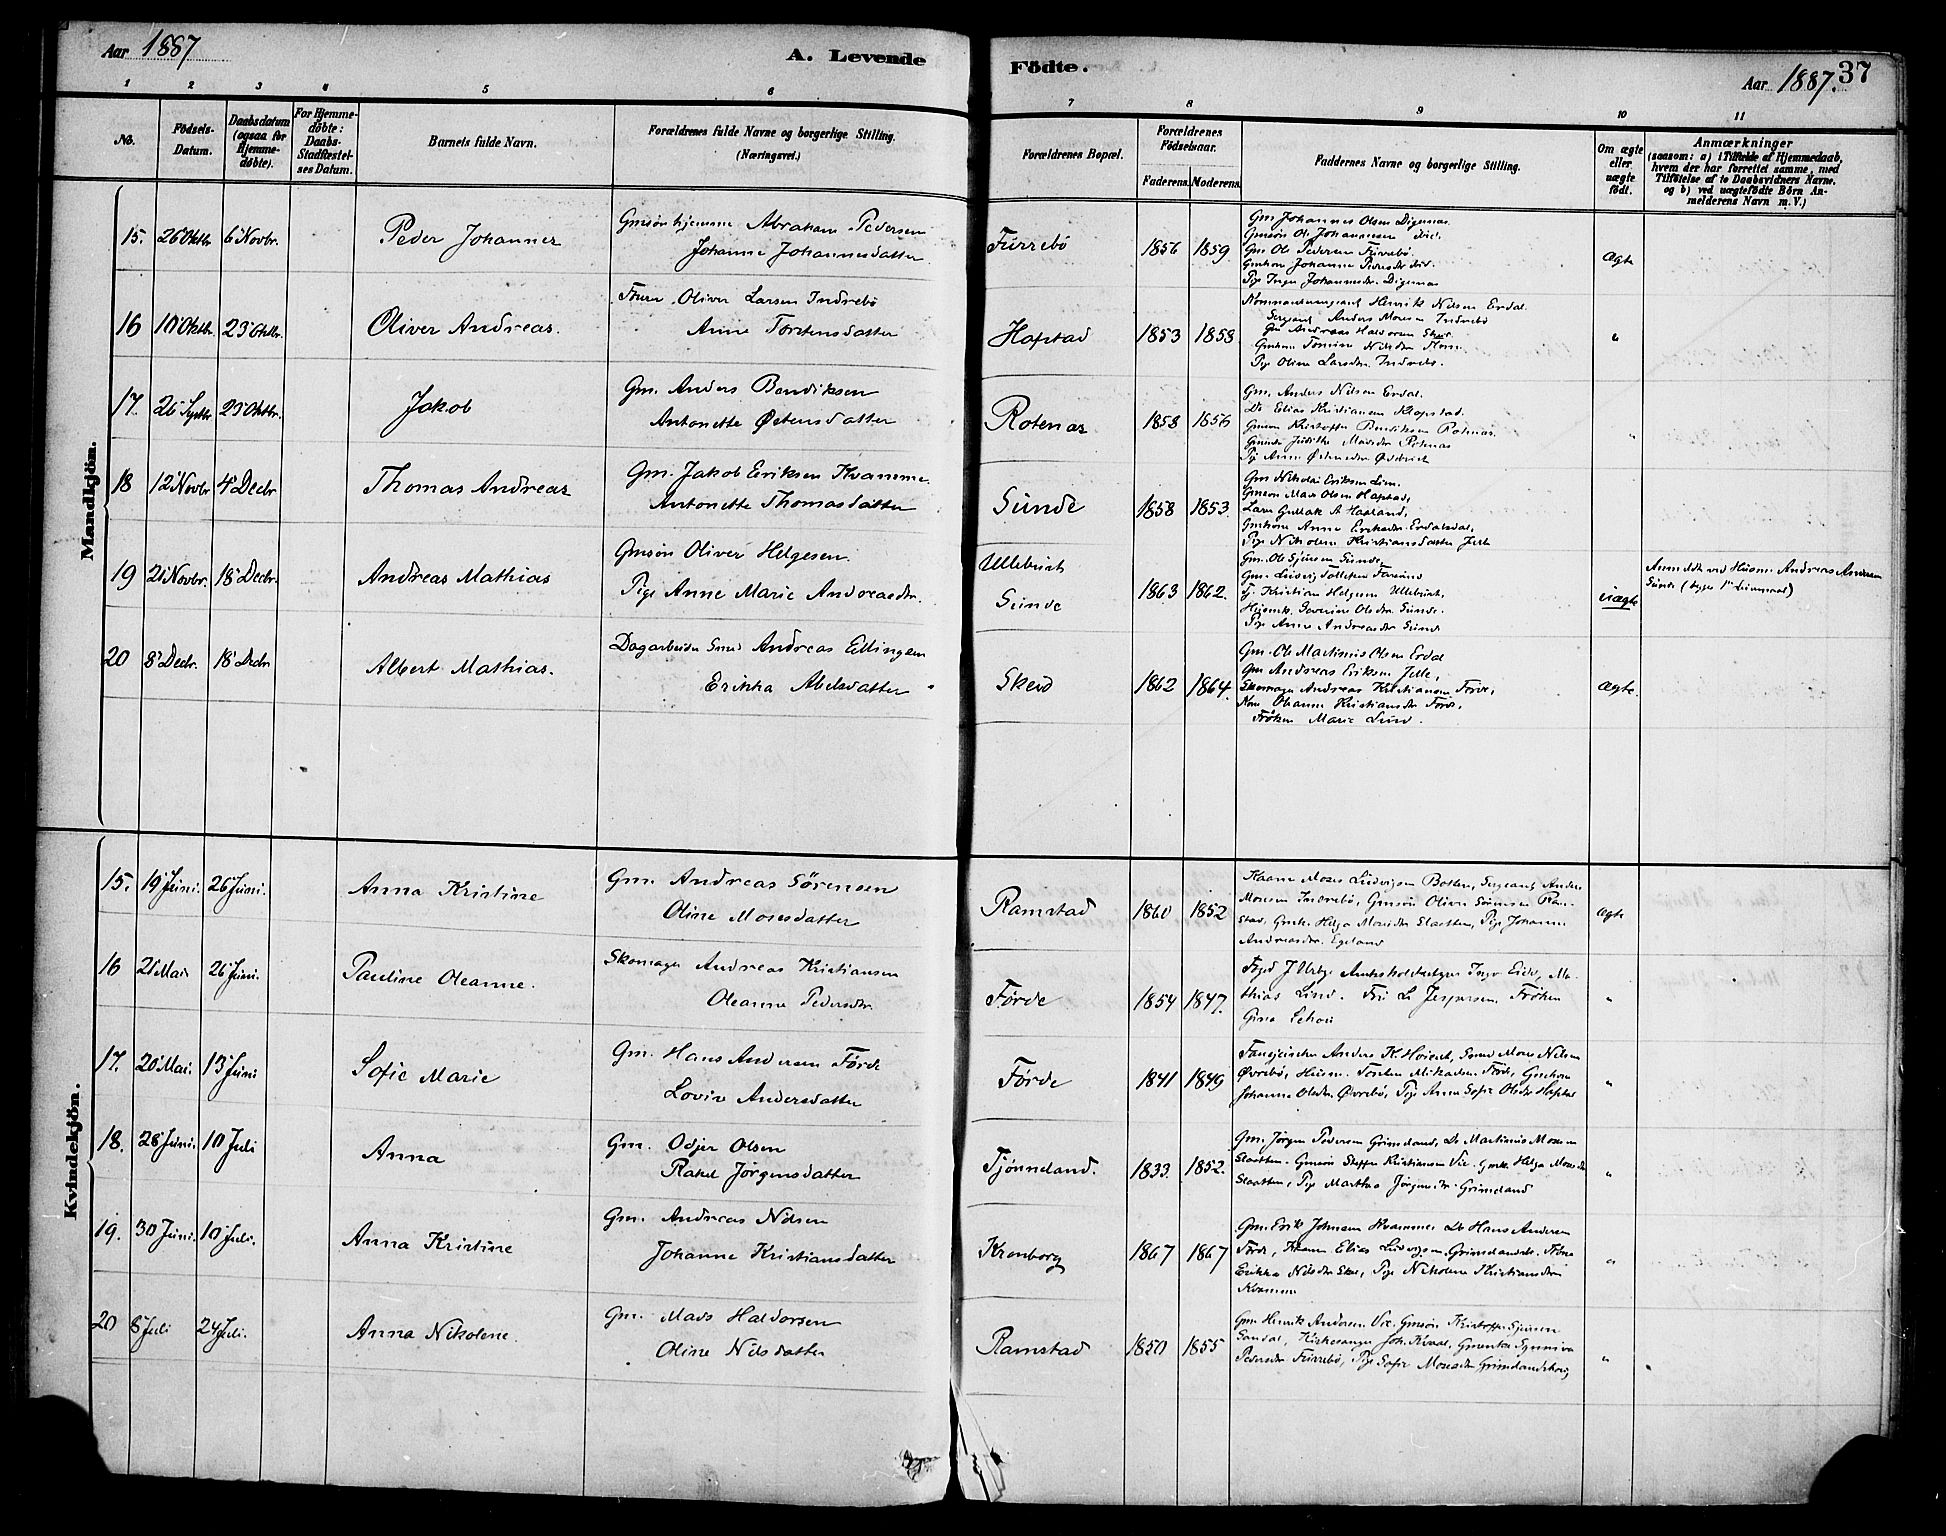 Aar 1887
A. Levende
Födte.
Aar 1887.
37
1 2 3 4 5 6 7 8 9 10 11
No.
Födsels-
Datum.
Daabsdatum
(ogsaa for
Hjemme-
døbte).
For Hjemme-
døbte:
Daabs-
Stadfæstel-
ses Datum.
Barnets fulde Navn.
Forældrenes fulde Navne og borgerlige Stilling.
(Næringsvei.)
Forældrenes Bopæl.
Forældrenes
Födselsaar.
Faderens. Moderens.
Faddernes Navne og borgerlige Stilling.
Om ægte
eller
uægte
født.
Anmærkninger
(saasom: a) i Tilfælde af Hjemmedaab,
hvem der har forrettet samme, med
Tilføielse af to Daabsvidners Navne.
og b) ved uægtefødte Börn An-
melderens Navn m. V.)
Mandkjön.
15. 26 Oktbr 6 Novbr. Peder Johannes
Gmsøn hjemme Abraham Pedersen
Johanne Johannesdatter
Furrebö 1856 1859
Gm Johannes Olsen Digernes
Gmsön Ol. Johannesen ibid.
Gm Ole Pedersen Furrebö.
Gmkone Johanne Pedersdtr ibid.
Pige Inger Johannesdr. Digernes
Ægte
16 10 Oktbr. 23 Oktbr. Oliver Andreas.
Oliver Larsen Indrebö
Anne Torstensdatter
Hafstad 1853 1858
Henrik Nilsen Erdal
Sergeant Anders Mosesen Indrebö
Gm Andreas Haldorsen
Pige Oline Larsdtr Indrebö.
"
17. 26 Septbr 23 Oktbr. Jakob
Gm. Anders Bendiksen
Antonette Østensdatter
Rotenæs 1858 1856
Gm. Anders Nilsen Erdal.
Do Elias Kristiansen Klopstad.
Gmsön Kristoffer Bendiksen Rotnæs.
"
18 12 Novbr 4 Decbr Thomas Andreas
Gm. Jakob Eriksen Kvamme.
Antonette Thomasdatter
Sunde 1858 1853.
Gm Nikolai Eriksen Lien.
Gmsön Mads Olsen Hafstad,
Gmkone Anne Eriksdtr. Erdalsdal,
Pige Nikoline Kristiansdatter Jelle
19 21 Novbr. 18 Decbr. Andreas Mathias
Gmsøn Oliver Helgesen.
Pige Anne Marie Andreasdtr.
Ullebust
Sunde 1863 1862.
Gm. Ole Sjursen Sunde,
Gm. Ludvig Tollefsen Farsund
Kristian Helgesen Ullebust,
Husmk. Severine Olsdtr Sunde.
Pige Anne Andreasdtr Sunde
uægte
Anmeldt ved Husm. Andreas Andersen
Sunde (begges 1ste Leiermaal)
20 8 Decbr. 18 Decbr Albert Mathias.
Dagarbeider Smed Andreas Ellingsen
Erikka Abelsdatter
Skeid 1862 1864.
Gm. Ole Martinus Olsen Erdal
Gm Andreas Eriksen Jelle,
Skomager Andreas Kristiansen Förde,
Kone Oleanne Kristiansdtr Förde,
Fröken Marie Lind.
Ægte.
Kvindekjön.
15. 19 Juni. 26 Juni. Anna Kristine
Gm. Andreas Sörensen
Oline Mosesdatter
Ramstad 1860 1852
Kaarm Moses Ludvigsen Botten, Sergeant Anders
Mosesen Indrebö, Gmsön Oliver Sörensen Ram-
stad, Gmk. Helga Mosesdtr Slaatten, Pige Johanne
Andreasdtr. Egeland
Ægte
16 21 Mai 26 Juni. Pauline Oleanne.
Skomager Andreas Kristiansen
Oleanne Pedersdtr.
Førde 1854 1847.
Foged J. Utby Inge Eide, Ma-
thias Lind. Fru L Jespersen. Fröken
Gina
"
17. 20 Mai. 13 Juni Sofie Marie
Gm. Hans Andersen Førde
Lovise Andersdatter
Førde 1841 1849
Anders K. Smed Mons Nilsen
Øvrebö, Husm. Torsten Mikalsen Förde, Gmkone
Johanne Olsdtr. Øvrebö, Pige Anne Sofie Olsdtr Hafstad
"
18. 28 Juni. 10 Juli Anna
Gm. Odjer Olsen
Rakel Jørgensdatter
Tjønneland. 1833. 1852.
Gm. Jörgen Pedersen Grimeland, Do Martinus Mosesen
Slaatten. Gmsön Steffen Kristiansen Vie. Gmk. Helga Mosesdtr
Slaatten, Pige Martha Jörgensdtr Grimeland
"
19. 30 Juni. 10 Juli. Anna Kristine
Gm. Andreas Nilsen
Johanne Kristiansdatter
Kronborg 1867 1867
Gm. Erik Johnsen Kvamme Do Hans Andersen
Förde, Kaarm Elias Ludvigsen Grimelandseide.
Erikka Nilsdtr Skei, Pige Nikoline Kristiansdtr
Kvamme
"
20 8 Juli 24 Juli. Anna Nikolene.
Gm. Mads Haldorsen
Oline Nilsdatter
Ramstad 1850 1855
Gm. Henrik Andersen Vie. Gmsön Kristoffer Sjursen
Sandal, Kirkesanger Joh. Kvaal, Gmenke Synneva
Pedersdtr Furrebö, Pige Sofie Monsdtr Grimelandshaug
"